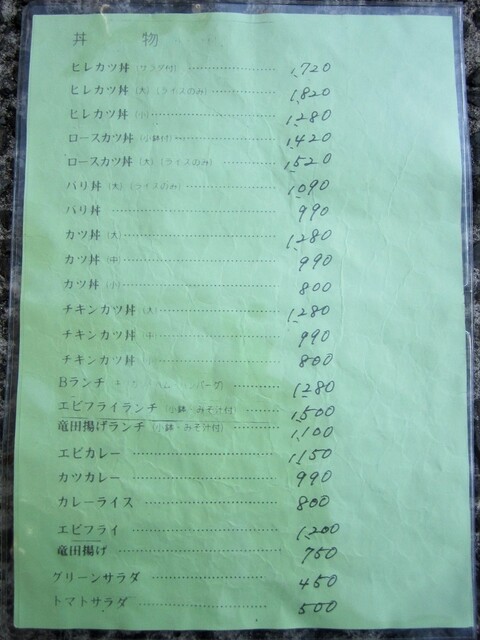 丼 物
ヒレカツ丼 (サラダ付) 1,720
ヒレカツ丼 (大) (ライスのみ) 1,820
ヒレカツ丼 (小) 1,280
ロースカツ丼 (小鉢付) 1,420
ロースカツ丼 (大) (ライスのみ) 1,520
バリ丼 (大) (ライスのみ) 1,090
バリ丼 990
カツ丼 (大) 1,280
カツ丼 (中) 990
カツ丼 (小) 800
チキンカツ丼 (大) 1,280
チキンカツ丼 990
チキンカツ丼 800
Bランチ 1,280
エビフライランチ (小鉢・みそ汁付) 1,500
竜田揚げランチ (小鉢・みそ汁付) 1,100
エビカレー 1,150
カツカレー 990
カレーライス 800
エビフライ 1,200
竜田揚げ 750
グリーンサラダ 450
トマトサラダ 500